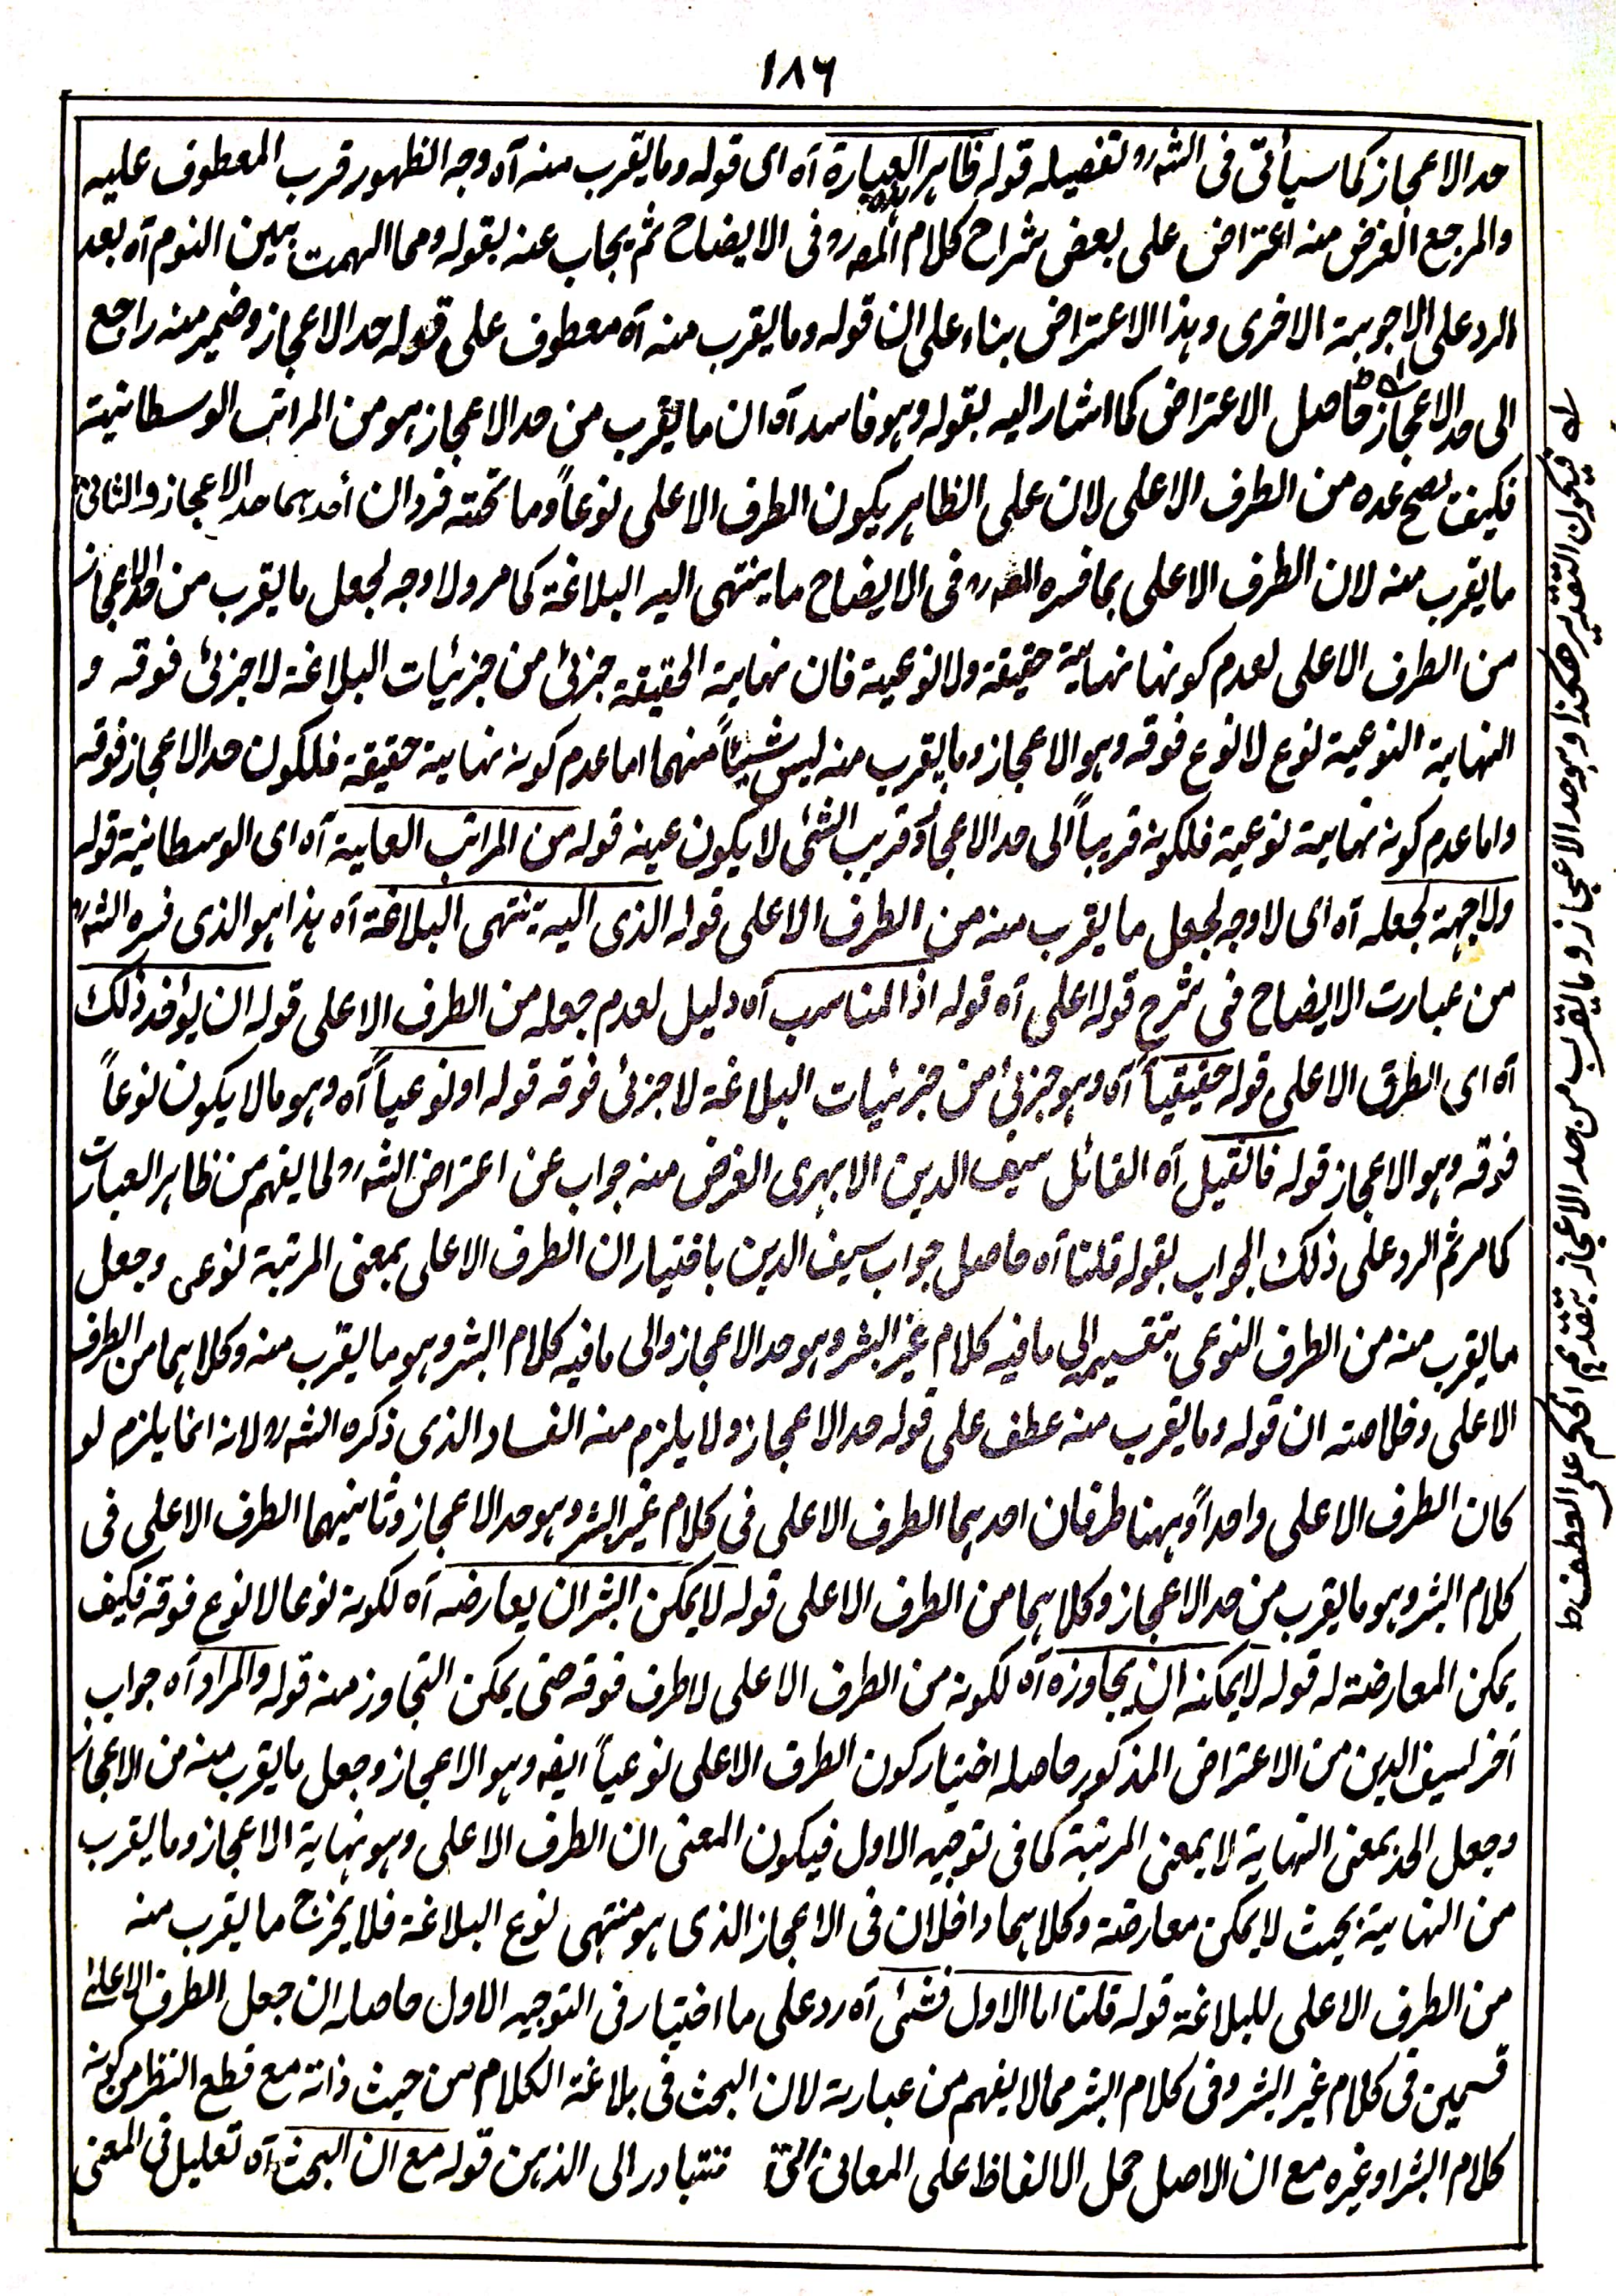 ١٨٦
حد الاعجاز كما سيأتى فى الشهرہ تفصيله قوله ظاهر العبارة آه اى قوله وما يقرب منه آه وجه الظهور قرب المعطوف عليه
والمرجع الغرض منه اعتراض على بعض شراح كلام المصہرہ فى الايضاح ثم يجاب عنه بقوله ومما الهمت بين النوم آه بعد
الرد على الاجوبة الاخرى وہذا الاعتراض بناء على ان قوله وما يقرب منه آه معطوف على قوله حد الاعجاز وضمير منه راجع
الى حد الاعجاز حاصل الاعتراض كما اشار اليه بقوله وہو فاسد آه ان ما يقرب من حد الاعجاز ہو من المراتب الوسطانية
فكيف يصح عده من الطرف الاعلى لان على الظاہر يكون الطرف الاعلى نوعاً وما تحته فردان أحدہما حد الاعجاز والثانى
ما يقرب منه لان الطرف الاعلى بما فسره المصہرہ فى الايضاح ما ينتهى اليه البلاغة كما مر ولا وجه لجعل ما يقرب من حد الاعجاز
من الطرف الاعلى لعدم كونها نهاية حقيقة ولا نوعية فان نهاية الحقيقة جزئ من جزئيات البلاغة لا جزئ فوقه و
النهاية النوعية نوع لا نوع فوقه وہو الاعجاز وما يقرب منه ليس شيئاً منهما اما عدم كونه نهاية حقيقة فلكون حد الاعجاز فوقه
واما عدم كونه نهاية نوعية فلكونه قريباً الى حد الاعجاز وقريب الشئ لا يكون عينه قوله من المراتب العالية آه اى الوسطانية قوله
ولا جهة لجعله آه اى لا وجه لجعل ما يقرب منه من الطرف الاعلى قوله الذى اليه ينتهى البلاغة آه ہذا ہو الذى فسره الشہرہ
من عبارت الايضاح فى شرح قوله اعلى آه قوله اذ المناسب آه دليل لعدم جعله من الطرف الاعلى قوله ان يؤخذ ذلك
آه اى الطرف الاعلى قوله حقيقياً آه وہو جزئ من جزئيات البلاغة لا جزئ فوقه قوله او نوعياً آه وہو ما لا يكون نوعاً
فوقه وہو الاعجاز قوله فان قيل آه القائل سيف الدين الابہرى الغرض منه جواب عن اعتراض الشہرہ ولما يفهم من ظاہر العبارت
كما مر ثم الرد على ذلك الجواب بقوله قلنا آه حاصل جواب سيف الدين باختيار ان الطرف الاعلى بمعنى المرتبة نوعى وجعل
ما يقرب منه من الطرف النوعى بتقسيمه الى ما فيه كلام غير البشر وہو حد الاعجاز والى ما فيه كلام البشر وہو ما يقرب منه وكلاہما من الطرف
الاعلى وخلاصته ان قوله وما يقرب منه عطف على قوله حد الاعجاز ولا يلزم منه الفساد الذى ذكره الشہرہ لانه انما يلزم لو
كان الطرف الاعلى واحداً وہہنا طرفان احدہما الطرف الاعلى فى كلام غير البشر وہو حد الاعجاز وثانيهما الطرف الاعلى فى
كلام البشر وہو ما يقرب من حد الاعجاز وكلاہما من الطرف الاعلى قوله لا يمكن البشر ان يعارضه آه لكونه نوعا لا نوع فوقه فكيف
يمكن المعارضة له قوله لا يمكنه ان يجاوزه آه لكونه من الطرف الاعلى لا طرف فوقه حتى يمكن التجاوز منه قوله والمراد آه جواب
آخر لسيف الدين من الاعتراض المذكور حاصله اختيار كون الطرف الاعلى نوعياً ايضہ وہو الاعجاز وجعل ما يقرب منه من الاعجاز
وجعل الحد بمعنى النهاية لا بمعنى المرتبة كما فى توجيه الاول فيكون المعنى ان الطرف الاعلى وہو نهاية الاعجاز وما يقرب
من النهاية بحيث لا يمكن معارضته وكلاہما داخلان فى الاعجاز الذى ہو منتهى نوع البلاغة فلا يخرج ما يقرب منه
من الطرف الاعلى للبلاغة قوله قلنا اما الاول فشئ آه رد على ما اختيار فى التوجيه الاول حاصله ان جعل الطرف الاعلى
قسمين فى كلام غير البشر وفى كلام البشر مما لا يفهم من عبارته لان البحث فى بلاغة الكلام من حيث ذاته مع قطع النظر من كونه
كلام البشر او غيره مع ان الاصل حمل الالفاظ على المعانى التى تتبادر الى الذہن قوله مع ان البحث آه تعليل فى المعنى
له فيكون التقدير ہكذا وہو حد الاعجاز وما يقرب من حد الاعجاز بتقديم الحكم على العطف ط